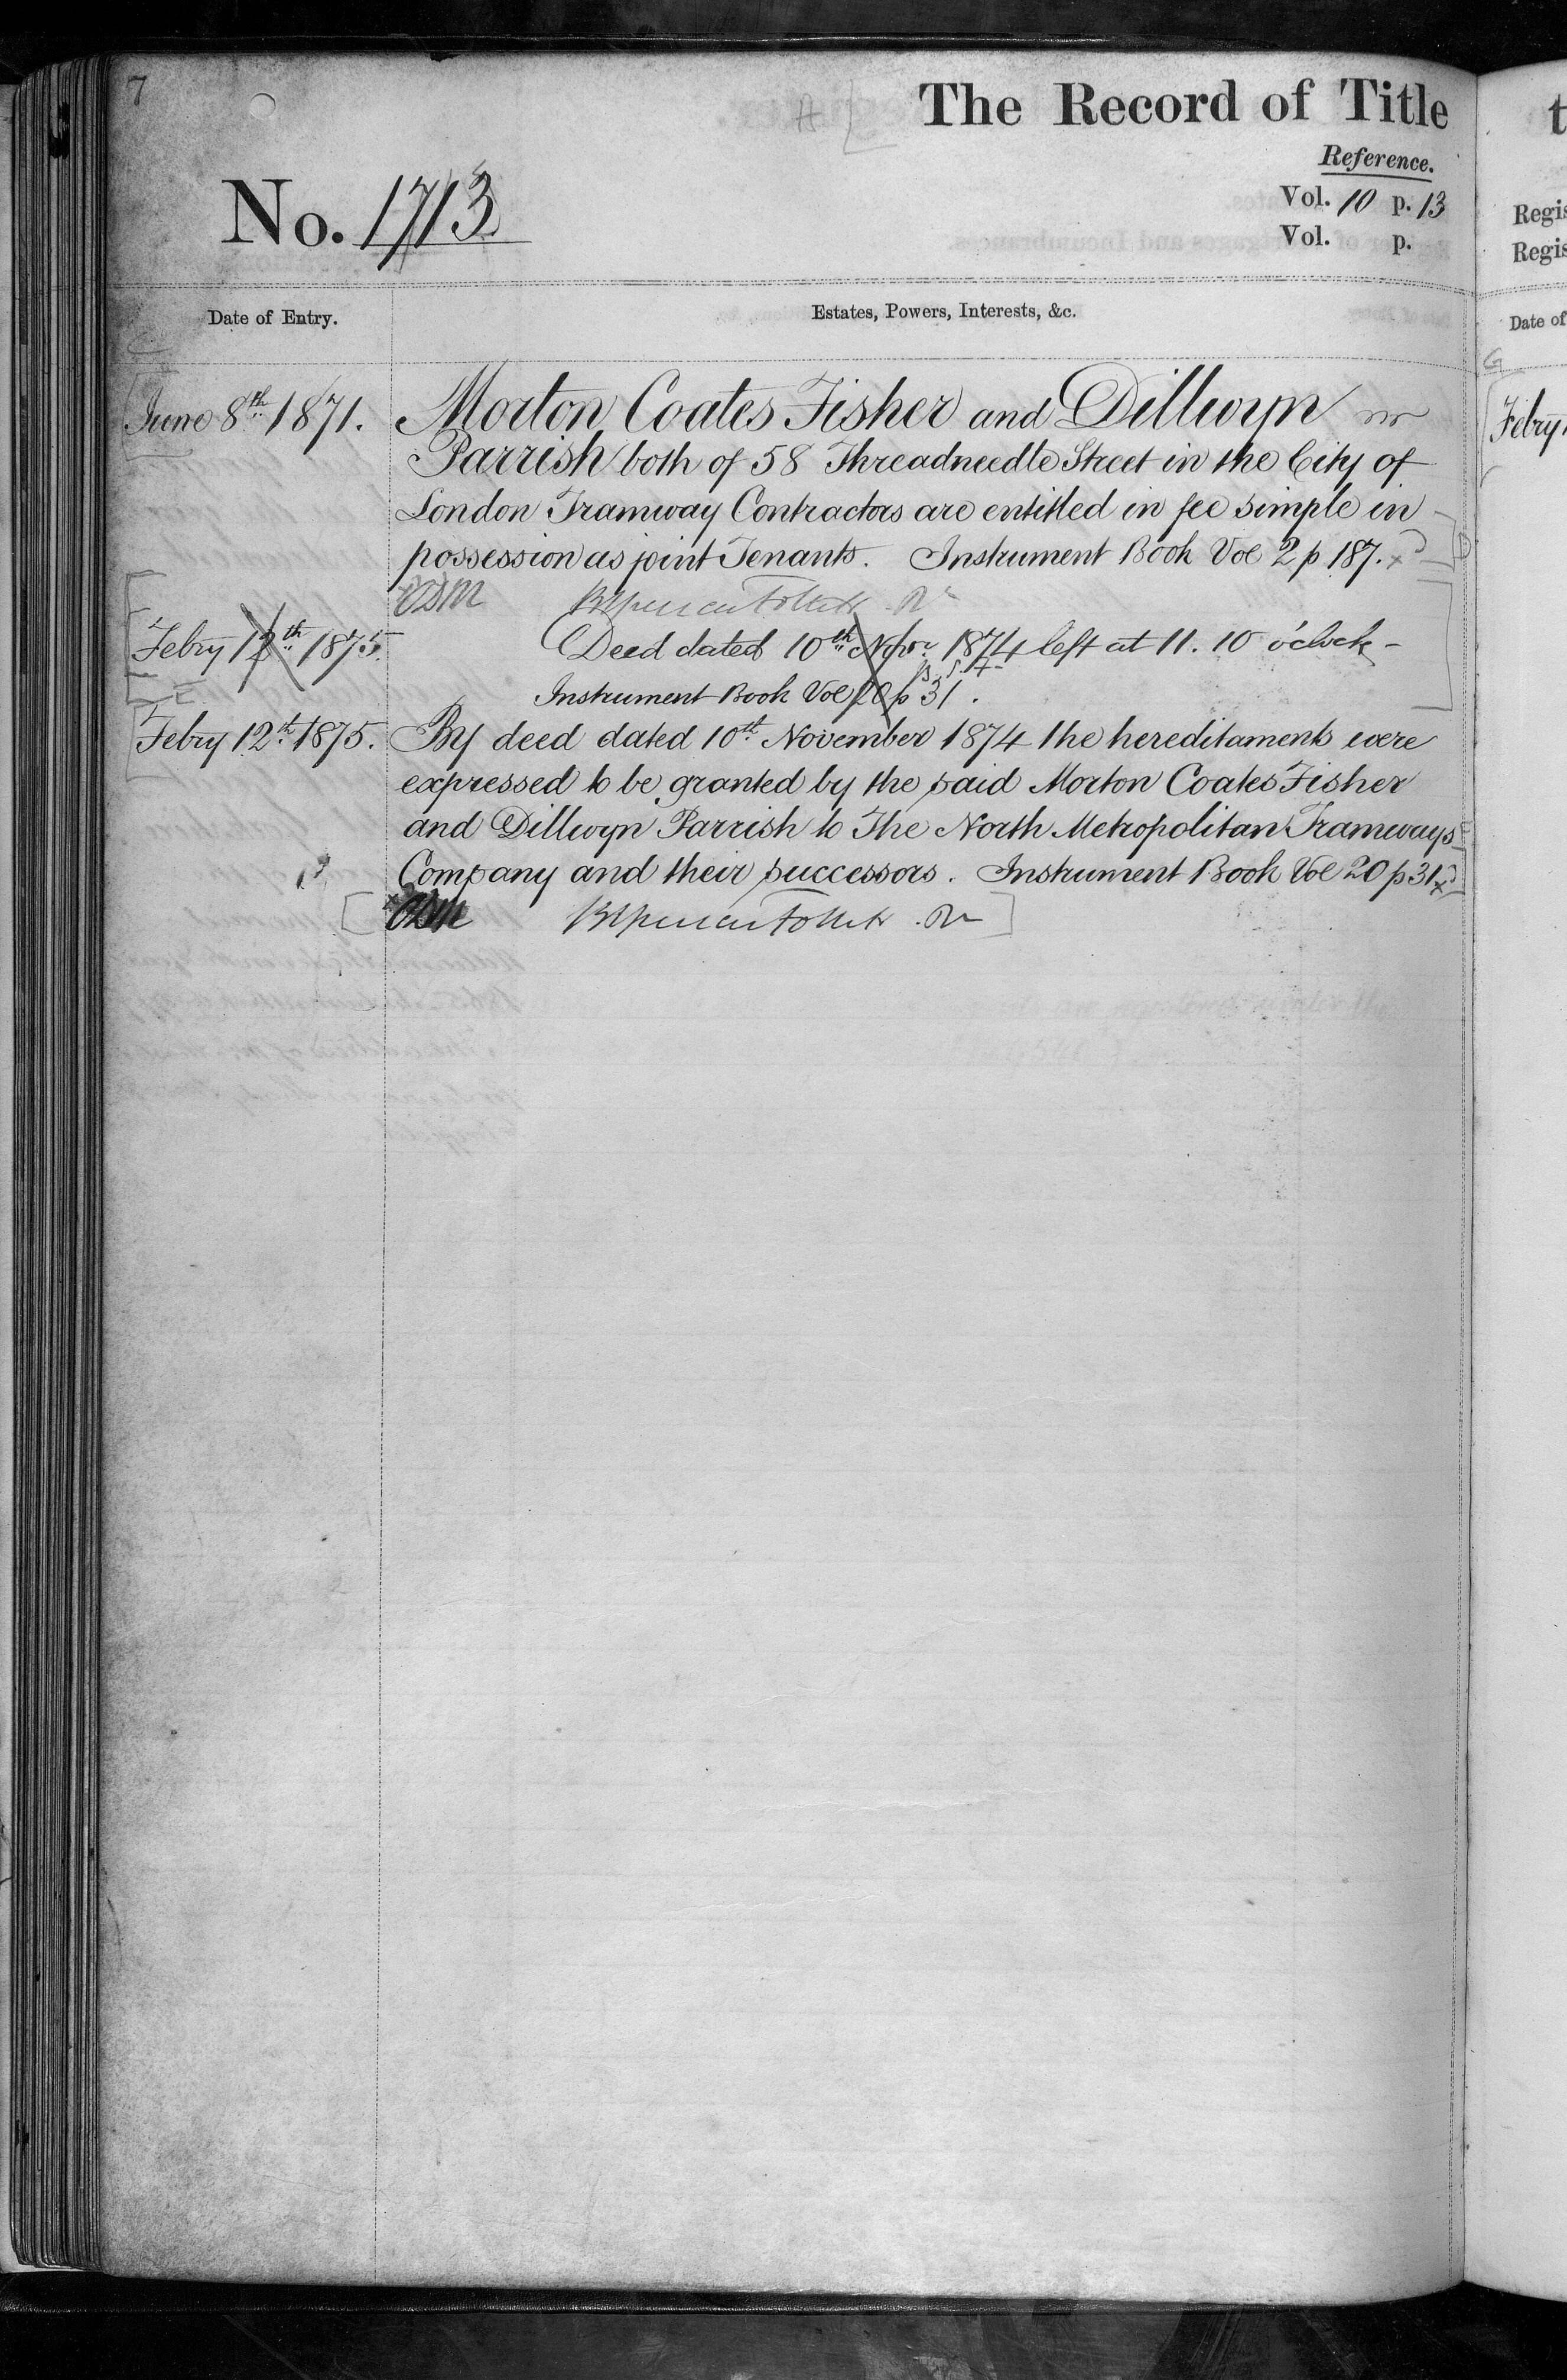 7
A
The Record of Title
Reference.
No. 1713
Vol. 10 p. 13
Vol. p.
Date of Entry.
Estates, Powers, Interests, &c.
June 8th 1871.
Morton Coates Fisher and Dillwyn
Parrish both of 58 Threadneedle Street in the City of
London Tramway Contractors are entitled in fee simple in
possession as joint Tenants. Instrument Book Vol 2 p 187.
Febry 12th 1875.
Deed dated 10th Novr 1874 left at 11.10 o'clock -
Instrument Book Vol 20 p 31.
Febry 12th 1875.
By deed dated 10th November 1874 the hereditaments were
expressed to be granted by the said Morton Coates Fisher
and Dillwyn Parrish to The North Metropolitan Tramways
Company and their successors. Instrument Book Vol 20 p 31
t
Regis
Regis
Date of
G
Febry